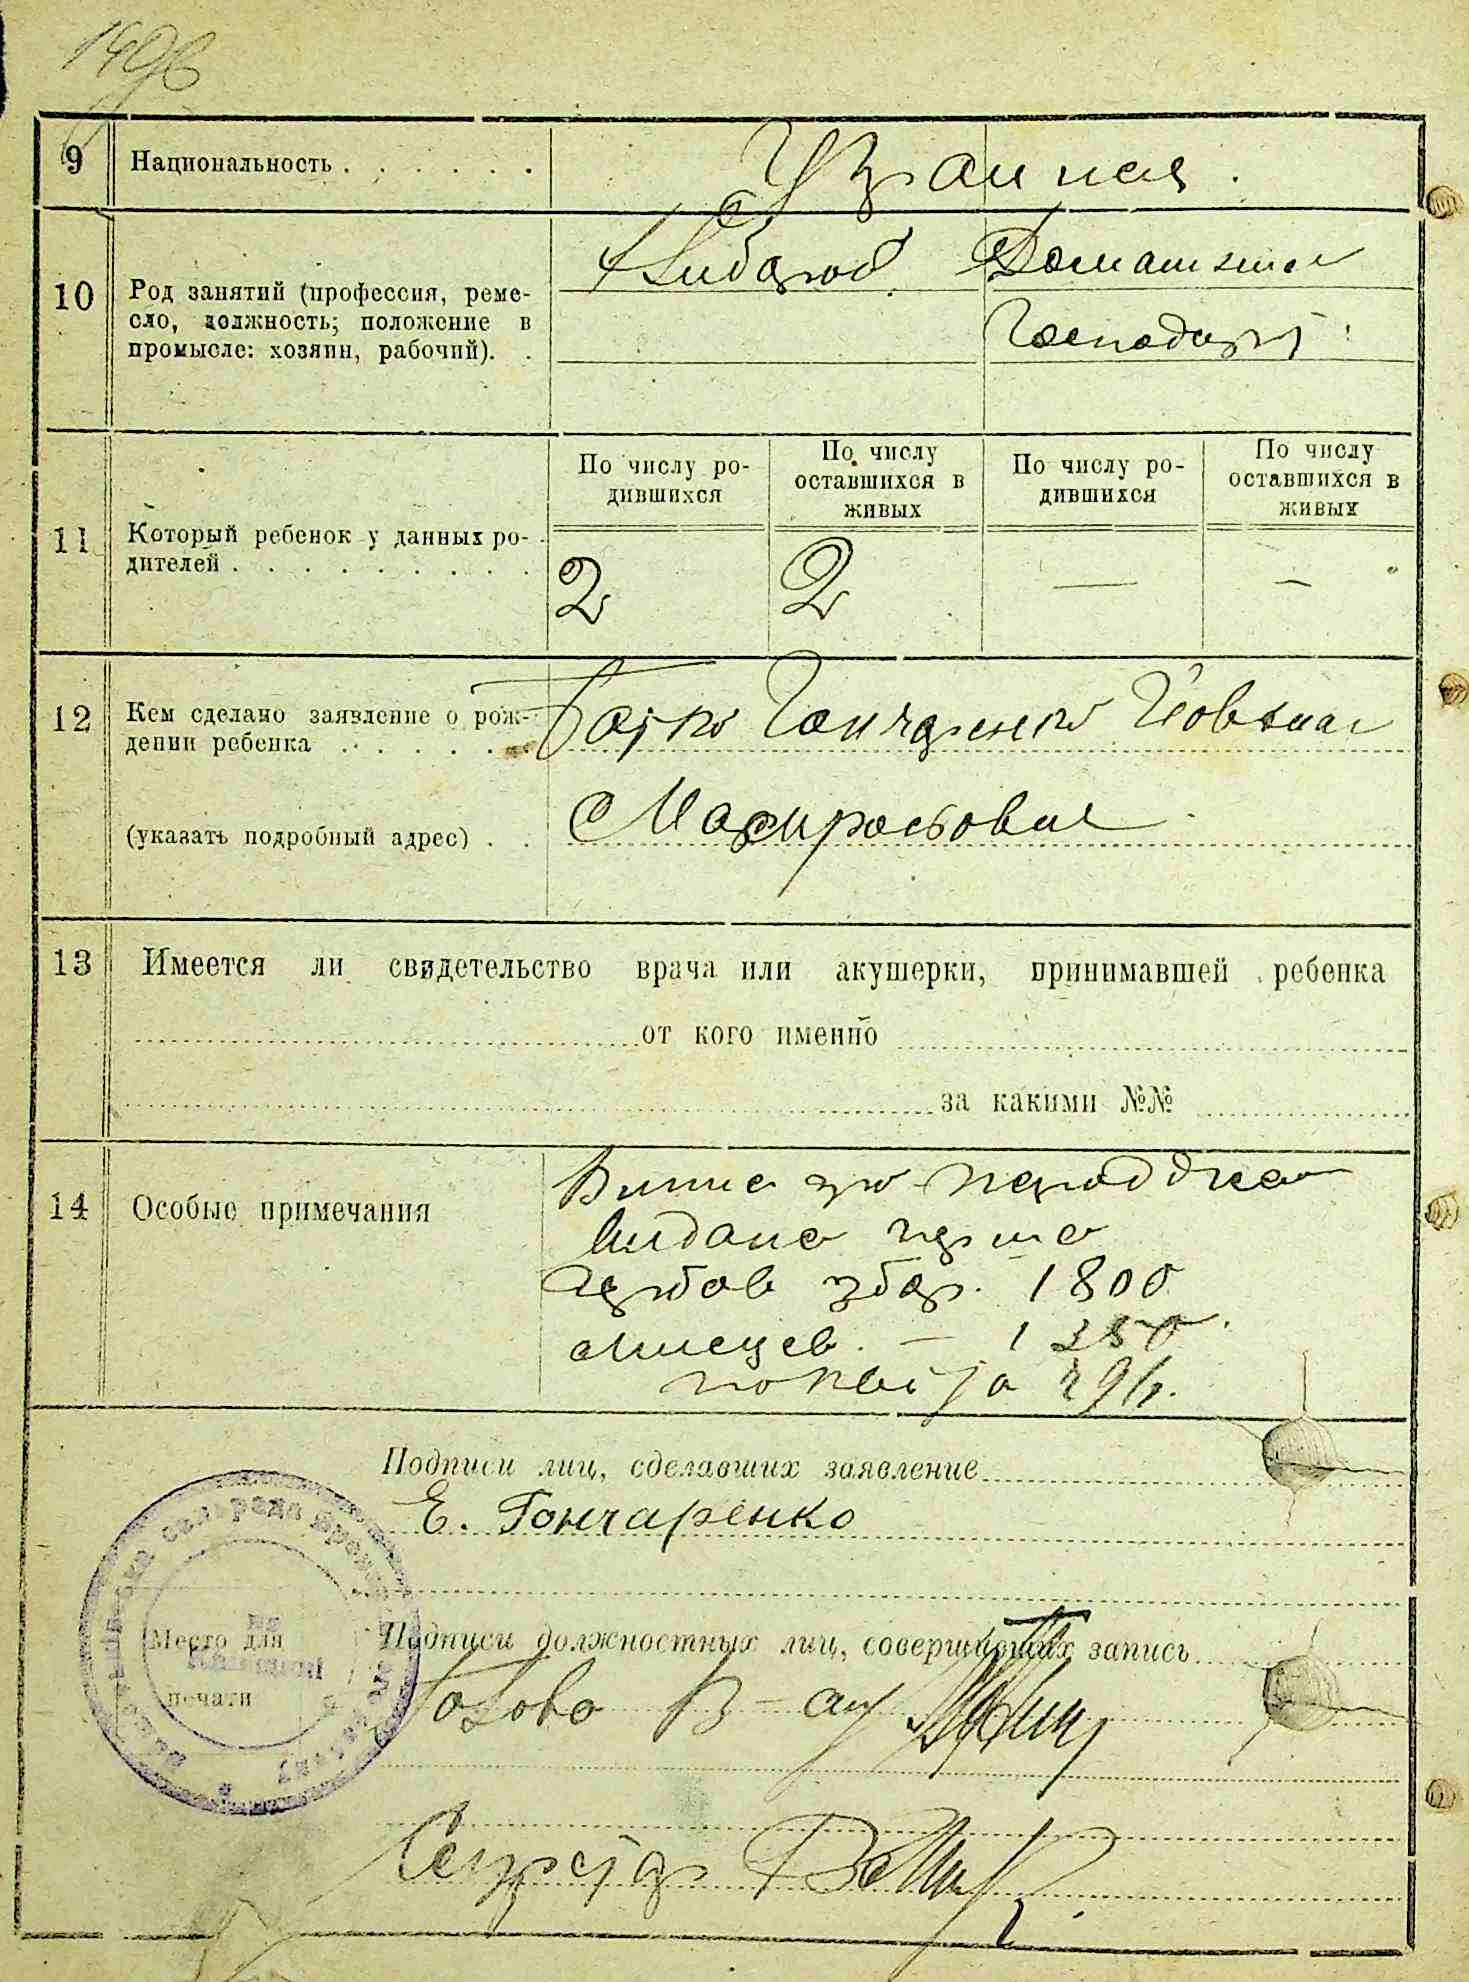 149б
9 Национальность . . . . . . Украинка.
10 Род занятий (профессия, реме-
сло, должность; положение в
промысле: хозяин, рабочий). .
Хлибороб Домашня
Господарк
11 Который ребенок у данных ро-
дителей . . . . . . . . .
По числу ро-
дившихся
По числу
оставшихся в
живых
По числу ро-
дившихся
По числу
оставшихся в
живых
2 2 — —
12 Кем сделано заявление о рож-
дении ребенка . . . . . .
Батько Гончаренко
(указать подробный адрес) . .
13 Имеется ли свидетельство врача или акушерки, принимавшей ребенка
от кого именно
за какими №№
14 Особые примечания
видана
гербов збор. 1800
мисцев. — 1350
Подписи лиц, сделавших заявление
Е. Гончаренко
Место для
печати
Подписи должностных лиц, совершивших запись
Голова
Секретар